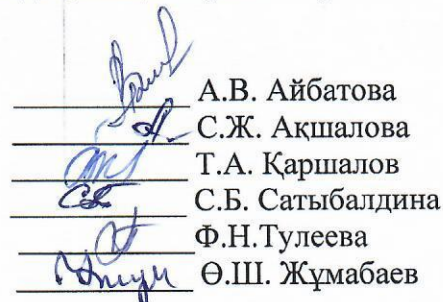 А.В. Айбатова
С.Ж. Ақшалова
Т.А. Қаршалов
С.Б. Сатыбалдина
Ф.Н.Тулеева
Ө.Ш. Жұмабаев